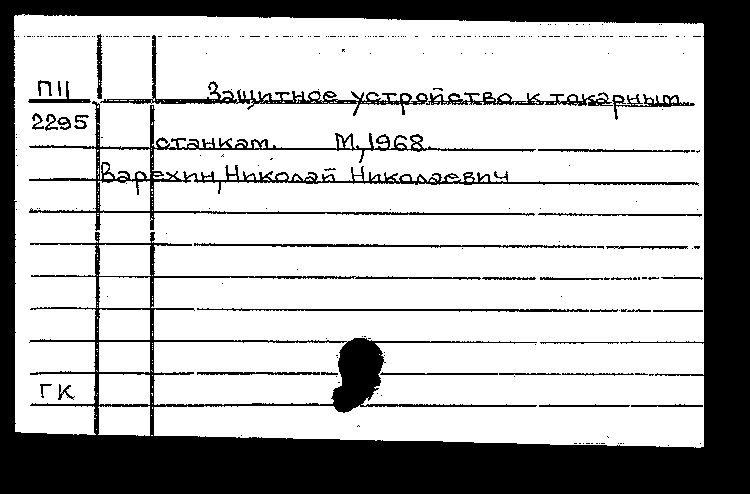 П11 Защитное устройство к токарным
2295
станкам. М.,1968.
Варехин,Николай Николаевич
ГК